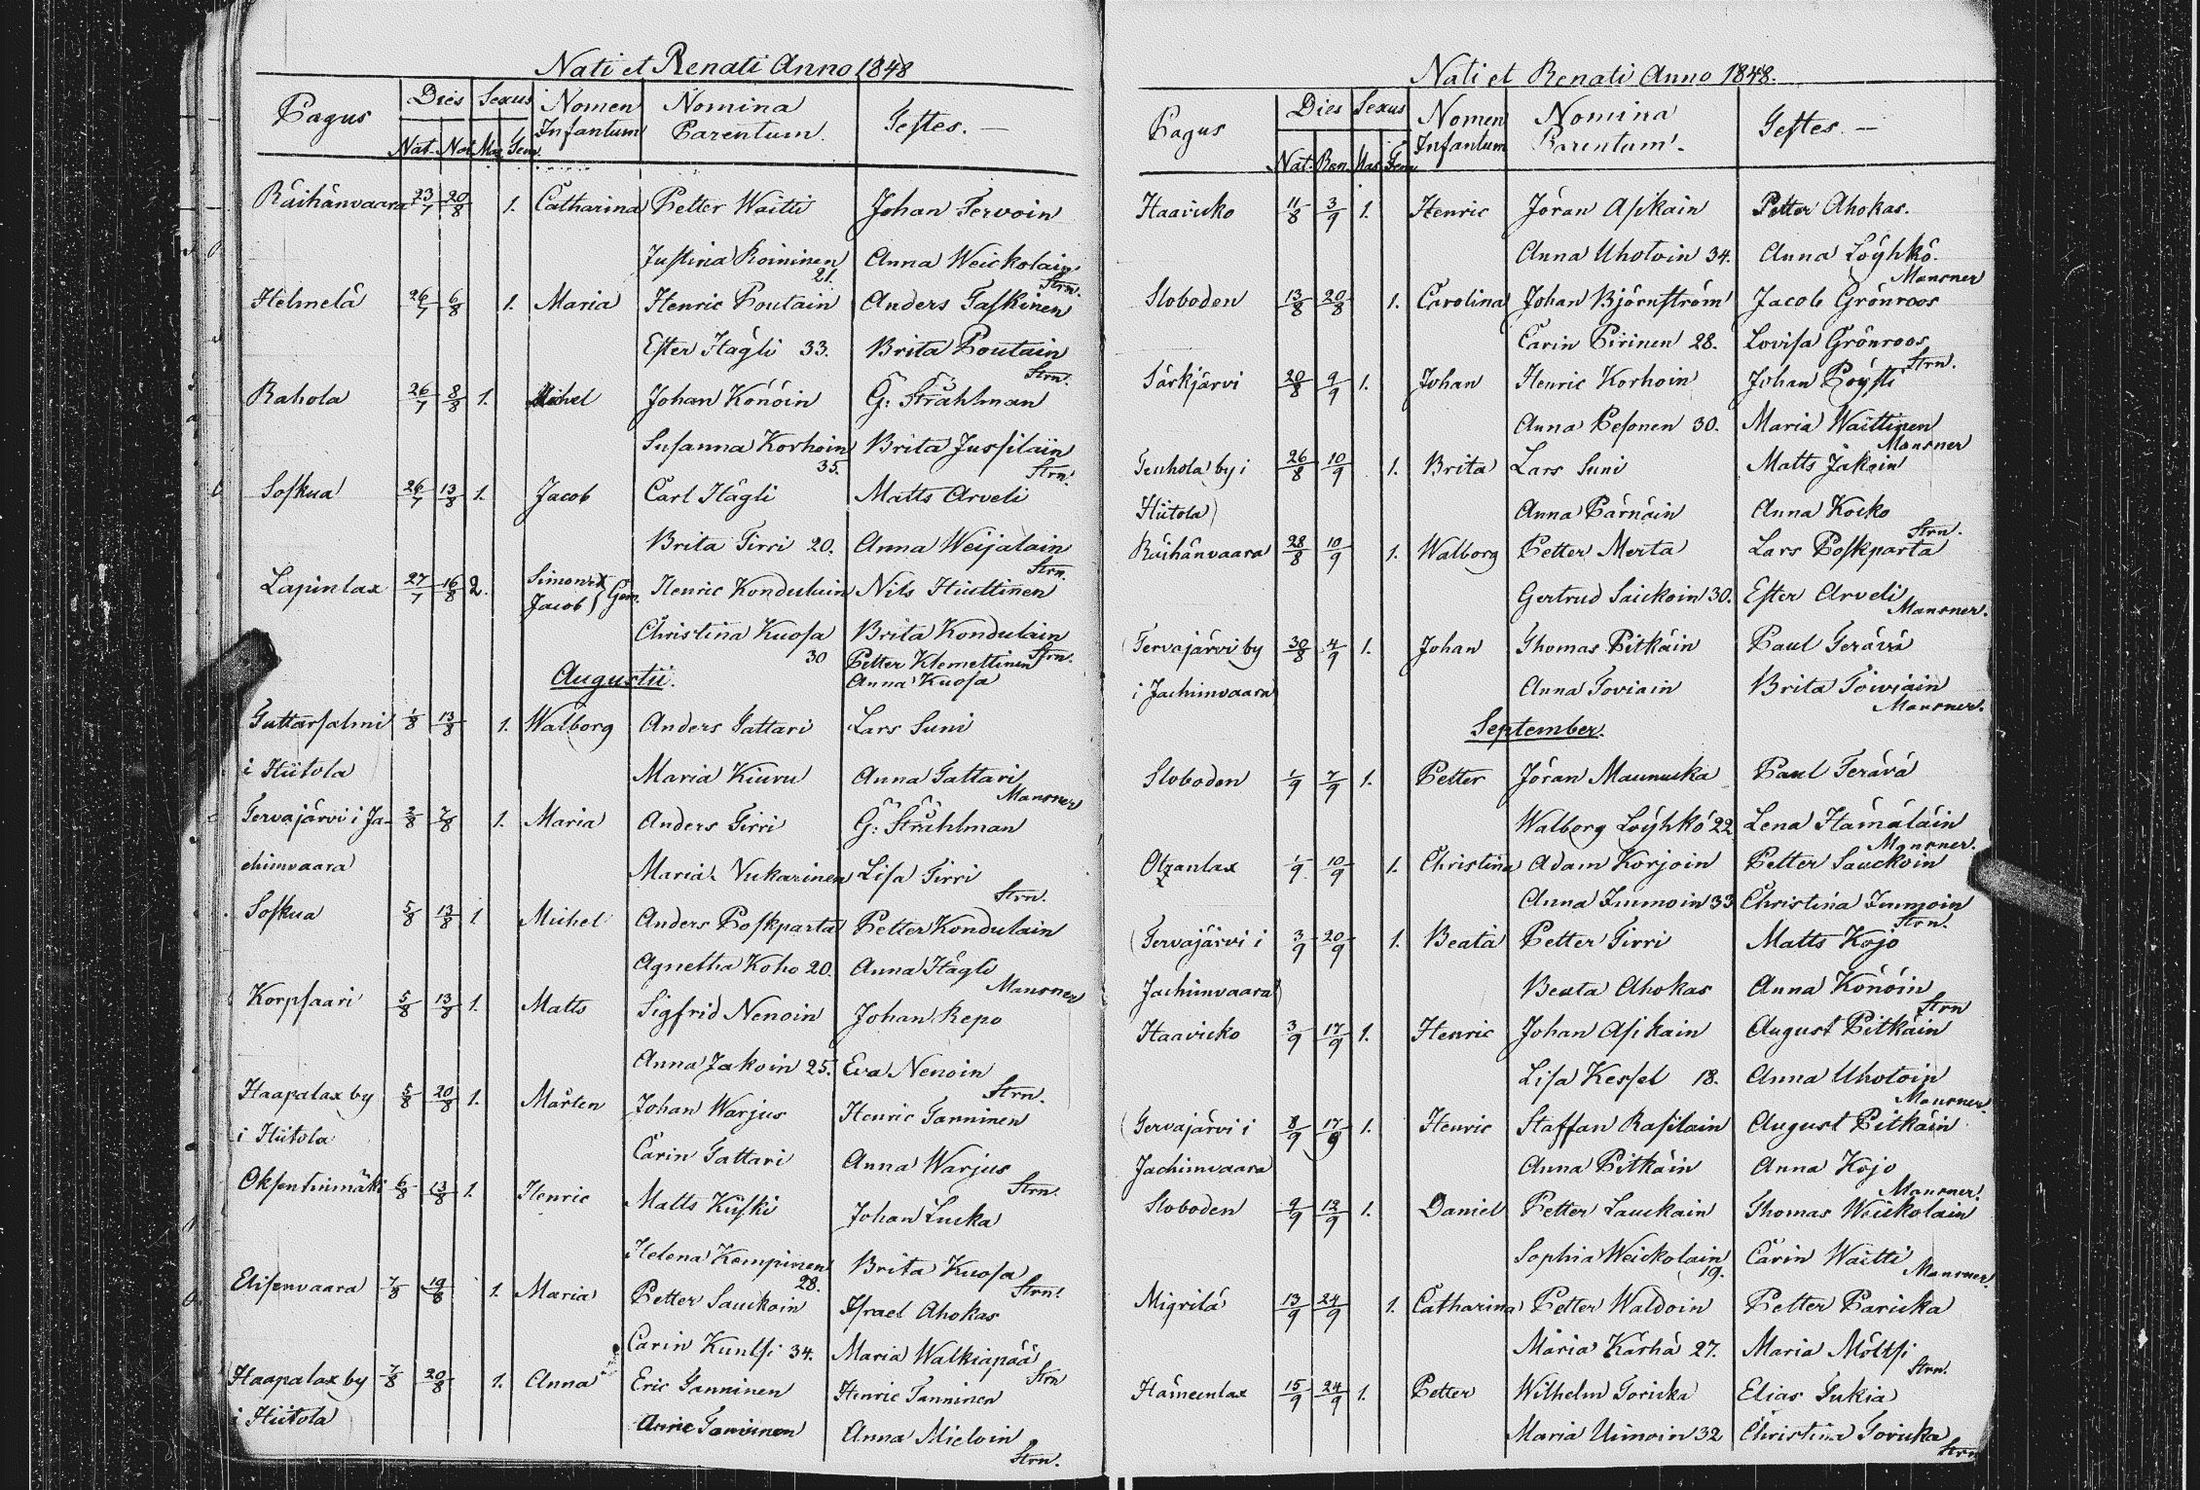 Nati et Renati Anno 1848
Pagus Dies Sexus Nomen Infantum Nomina Parentum Testes. —
Nat. Not. Mas. Fem.
Räihänvaara 23/7 20/8 1. Catharina Petter Waitti Johan Tervoin
Justina Roininen 21. Anna Weickolain Strn.
Helmelä 26/7 6/8 1. Maria Henric Poutain Anders Taskinen
Ester Hägli 33. Brita Poutain Strn.
Rahola 26/7 8/8 1. Michel Johan Könöin G: Stråhlman
Susanna Korhoin 35. Brita Jussilain Strn.
Soskua 26/7 13/8 1. Jacob Carl Hägli Matts Arveli
Brita Tirri 20. Anna Weijalain Strn.
Lapinlax 27/7 16/8 2. Simon et Jacob } Gem. Henric Kondulain Nils Hiultinen
Christina Kuosa 30 Brita Kondulain Strn.
Petter Klemettinen
Augustii. Anna Kuosa
Tattarsalmi 1/8 13/8 1. Walborg Anders Tattari Lars Suni
i Hiitola Maria Kiuru Anna Tattari Mansner
Tervajärvi i Ja- 2/8 7/8 1. Maria Anders Tirri G: Stråhlman
chimvaara Maria Nukarinen Lisa Tirri Strn.
Soskua 5/8 13/8 1 Michel Anders Poskparta Petter Kondulain
Agnetha Koho 20. Anna Hägli Mansner
Korpsaari 5/8 13/8 1. Matts Sigfrid Nenoin Johan Repo
Anna Jakoin 25. Eva Nenoin Strn.
Haapalax by 5/8 20/8 1. Mårten Johan Warjus Henric Tanninen
i Hiitola Carin Tattari Anna Warjus Strn.
Oksentinmäki 6/8 13/8 1. Henric Matts Kiiski Johan Lucka
Helena Kempinen 28. Brita Kuosa Strn.
Elisenvaara 7/8 19/8 1. Maria Petter Sauckoin Israel Ahokas
Carin Kuntsi 34. Maria Walkiapää Strn
Haapalax by 7/8 20/8 1. Anna Eric Tanninen Henric Tanninen
i Hiitola Tanninen Anna Mieloin Strn.
Nati et Renati Anno 1848.
Pagus Dies Sexus Nomen Infantum Nomina Parentum. Testes. —
Nat. Ren. Mas. Fem
Haavicko 11/8 3/9 1. Henric Jöran Asikain Petter Ahokas.
Anna Uhotoin 34. Anna Löyhkö. Mansner
Sloboden 13/8 20/8 1. Carolina Johan Björnström Jacob Grönroos
Carin Pirinen 28. Lovisa Grönroos Strn.
Särkjärvi 20/8 9/9 1. Johan Henric Korhoin Johan Pöysti
Anna Pesonen 30. Maria Waittinen Mansner
Tenhola by i 26/8 10/9 1. Brita Lars Suni Matts Jakoin
Hiitola Anna Pärnäin Anna Kocko Strn.
Räihänvaara 28/8 10/9 1. Walborg Petter Merta Lars Poskparta
Gertrud Saickoin 30. Ester Arveli Mansner.
Tervajärvi by 30/8 4/9 1. Johan Thomas Pitkäin Paul Terävä
i Jachimvaara Anna Toviain Brita Toiviain Mansner.
September.
Sloboden 1/9 7/9 1. Petter Jöran Maunucka Paul Terävä
Walborg Löyhkö 22 Lena Hämäläin Mansner.
Otzanlax 1/9 10/9 1. Christina Adam Korjoin Petter Sauckoin
Anna Immoin 33 Christina Immoin Strn.
Tervajärvi i 3/9 20/9 1. Beata Petter Tirri Matts Kojo
Jachimvaara Beata Ahokas Anna Könöin Strn
Haavicko 3/9 17/9 1. Henric Johan Asikain August Pitkäin
Lisa Kessel 18. Anna Uhotoin Mansner.
Tervajärvi i 8/9 17/9 1. Henric Staffan Rasilain August Pitkäin
Jachimvaara Anna Pitkäin Anna Kojo Mansner.
Sloboden 9/9 12/9 1. Daniel Petter Lauckain Thomas Weickolain
Sophia Weickolain 19. Carin Waitti Mansner.
Migrilä 13/9 24/9 1. Catharina Petter Waldoin Petter Paricka
Maria Kärhä 27. Maria Möltsi Strn.
Hämeenlax 15/9 24/9 1. Petter Wilhelm Toricka Elias Tukia
Maria Uimoin 32 Christina Toricka Strn